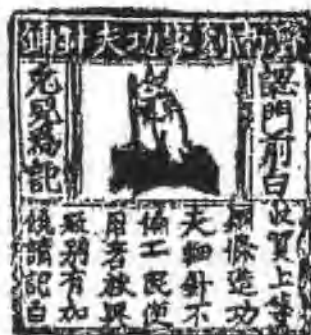 濟南劉家功夫針鋪
認門前白
兔兒爲記
收買上等
鋼條造功
夫細針不
偷工民便
用
販別有加
饒請記白